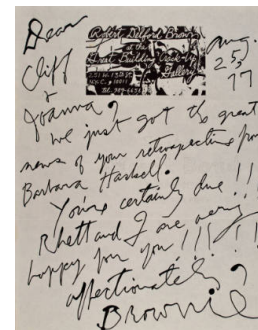 Dear
Cliff
&
Joanna,
Robert Delford Brown
at the
Great Building Crack-Up
Gallery
251 W. 13th St.
N.Y.C. 10011
Aug.
25,
77
We just got the great
news of your retrospective from
Barbara Haskell.
You're certainly due!!
Rhett and I are very
happy for you!!!!
affectionately,
Brownie